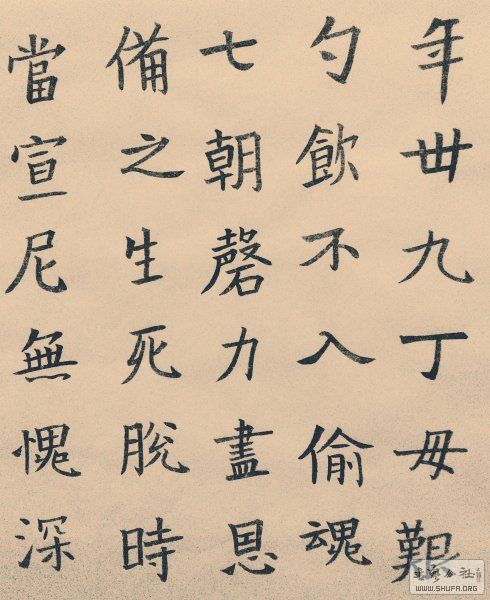 年丗九丁毋艱
勺飲不入偷魂
七朝磬力盡恩
備之生死脫時
當宣尼無愧深
WWW.SHUFA.ORG